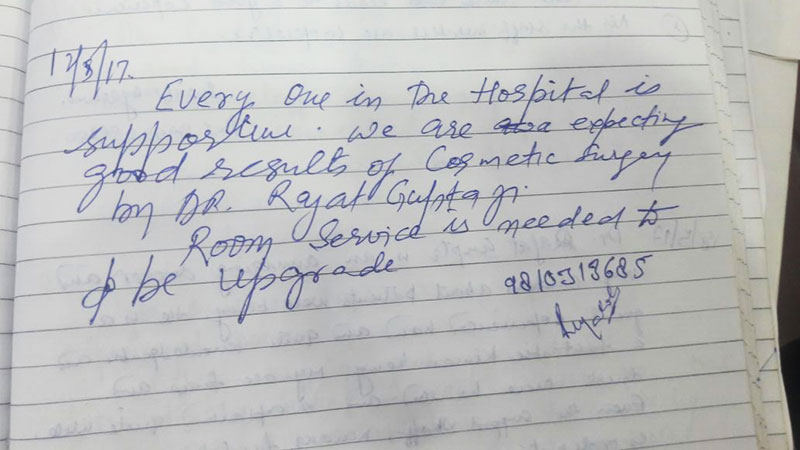 12/3/17.
Every One in The Hospital is
supportive. We are expecting
good results of Cosmetic Surgery
by DR. Rajat Gupta ji.
Room Service is needed to
be upgrade
9810319685